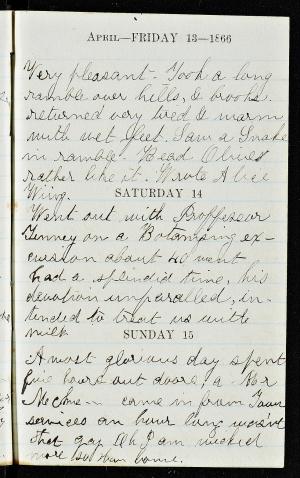 APRIL—FRIDAY 13—1866
Very pleasant - Took a long
ramble over hills, & brooks.
returned very tired & warm
with wet feet. Saw a Snake
in ramble - Read Olives
rather like it. Wrote Alice
Wing.
SATURDAY 14
Went out with Proffesor
Tenney on a Botanising ex-
cursion about 40 went
had a splendid time, his
devotion unparalled, in-
tended to treat us with
milk
SUNDAY 15
A most glorious day spent
five hours out doors, a Mr
come in from Town
services an hour long wasn't
that gay Oh I am wicked
more so than home.